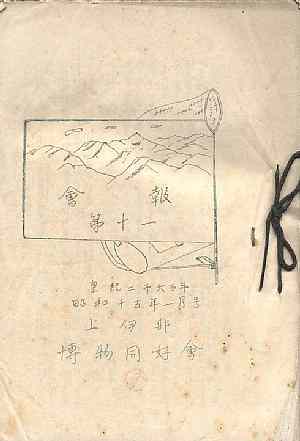 會報
第十一
皇紀二千六百年
昭和十五年一月号
上伊那
博物同好會